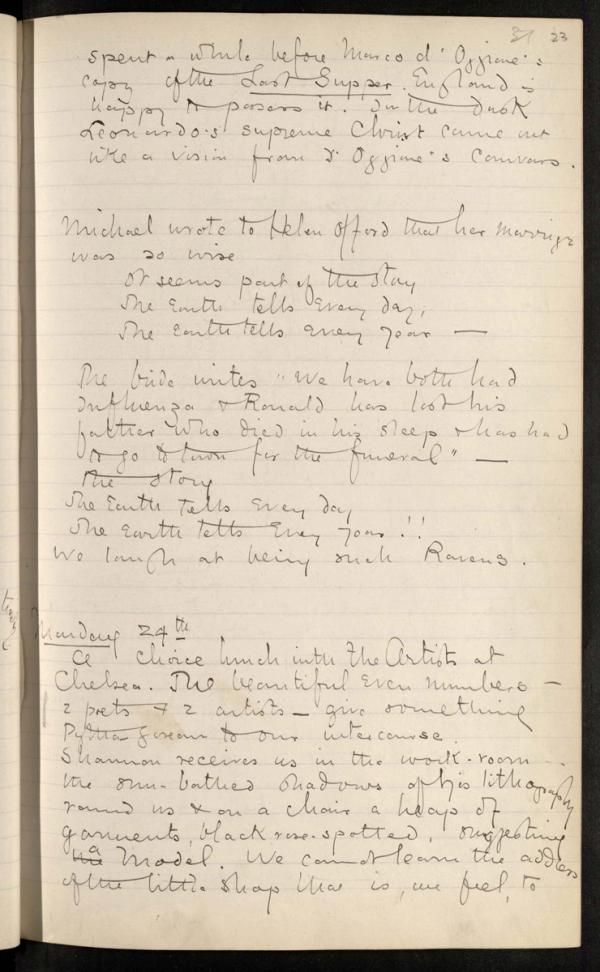 23
spent a while before Marco d' Oggione's
copy of the Last Supper. England is
happy to possess it. In the dusk
Leonardo's supreme Christ came out
like a vision from d' Oggione's canvas.
Michael wrote to Helen Offord that her marriage
was so wise
It seems part of the story
The Earth tells every day,
The Earth tells every year —
The bride writes "We have both had
Influenza & Ronald has lost his
father who died in his sleep & has had
to go to town for the funeral" —
the story
The Earth tells every day
The Earth tells Every year!!
We laugh at being such Ravens.
Monday 24th
A choice lunch with the Artists at
Chelsea. The beautiful even numbers —
2 poets & 2 artists — give something
Pythagorean to our intercourse.
Shannon receives us in the work-room —
the sun-bathed shadows of his lithography
round us & on a chair a heap of
garments, black rose-spotted, suggesting
a Model. We cannot learn the address
of the little shop that is, we feel, to